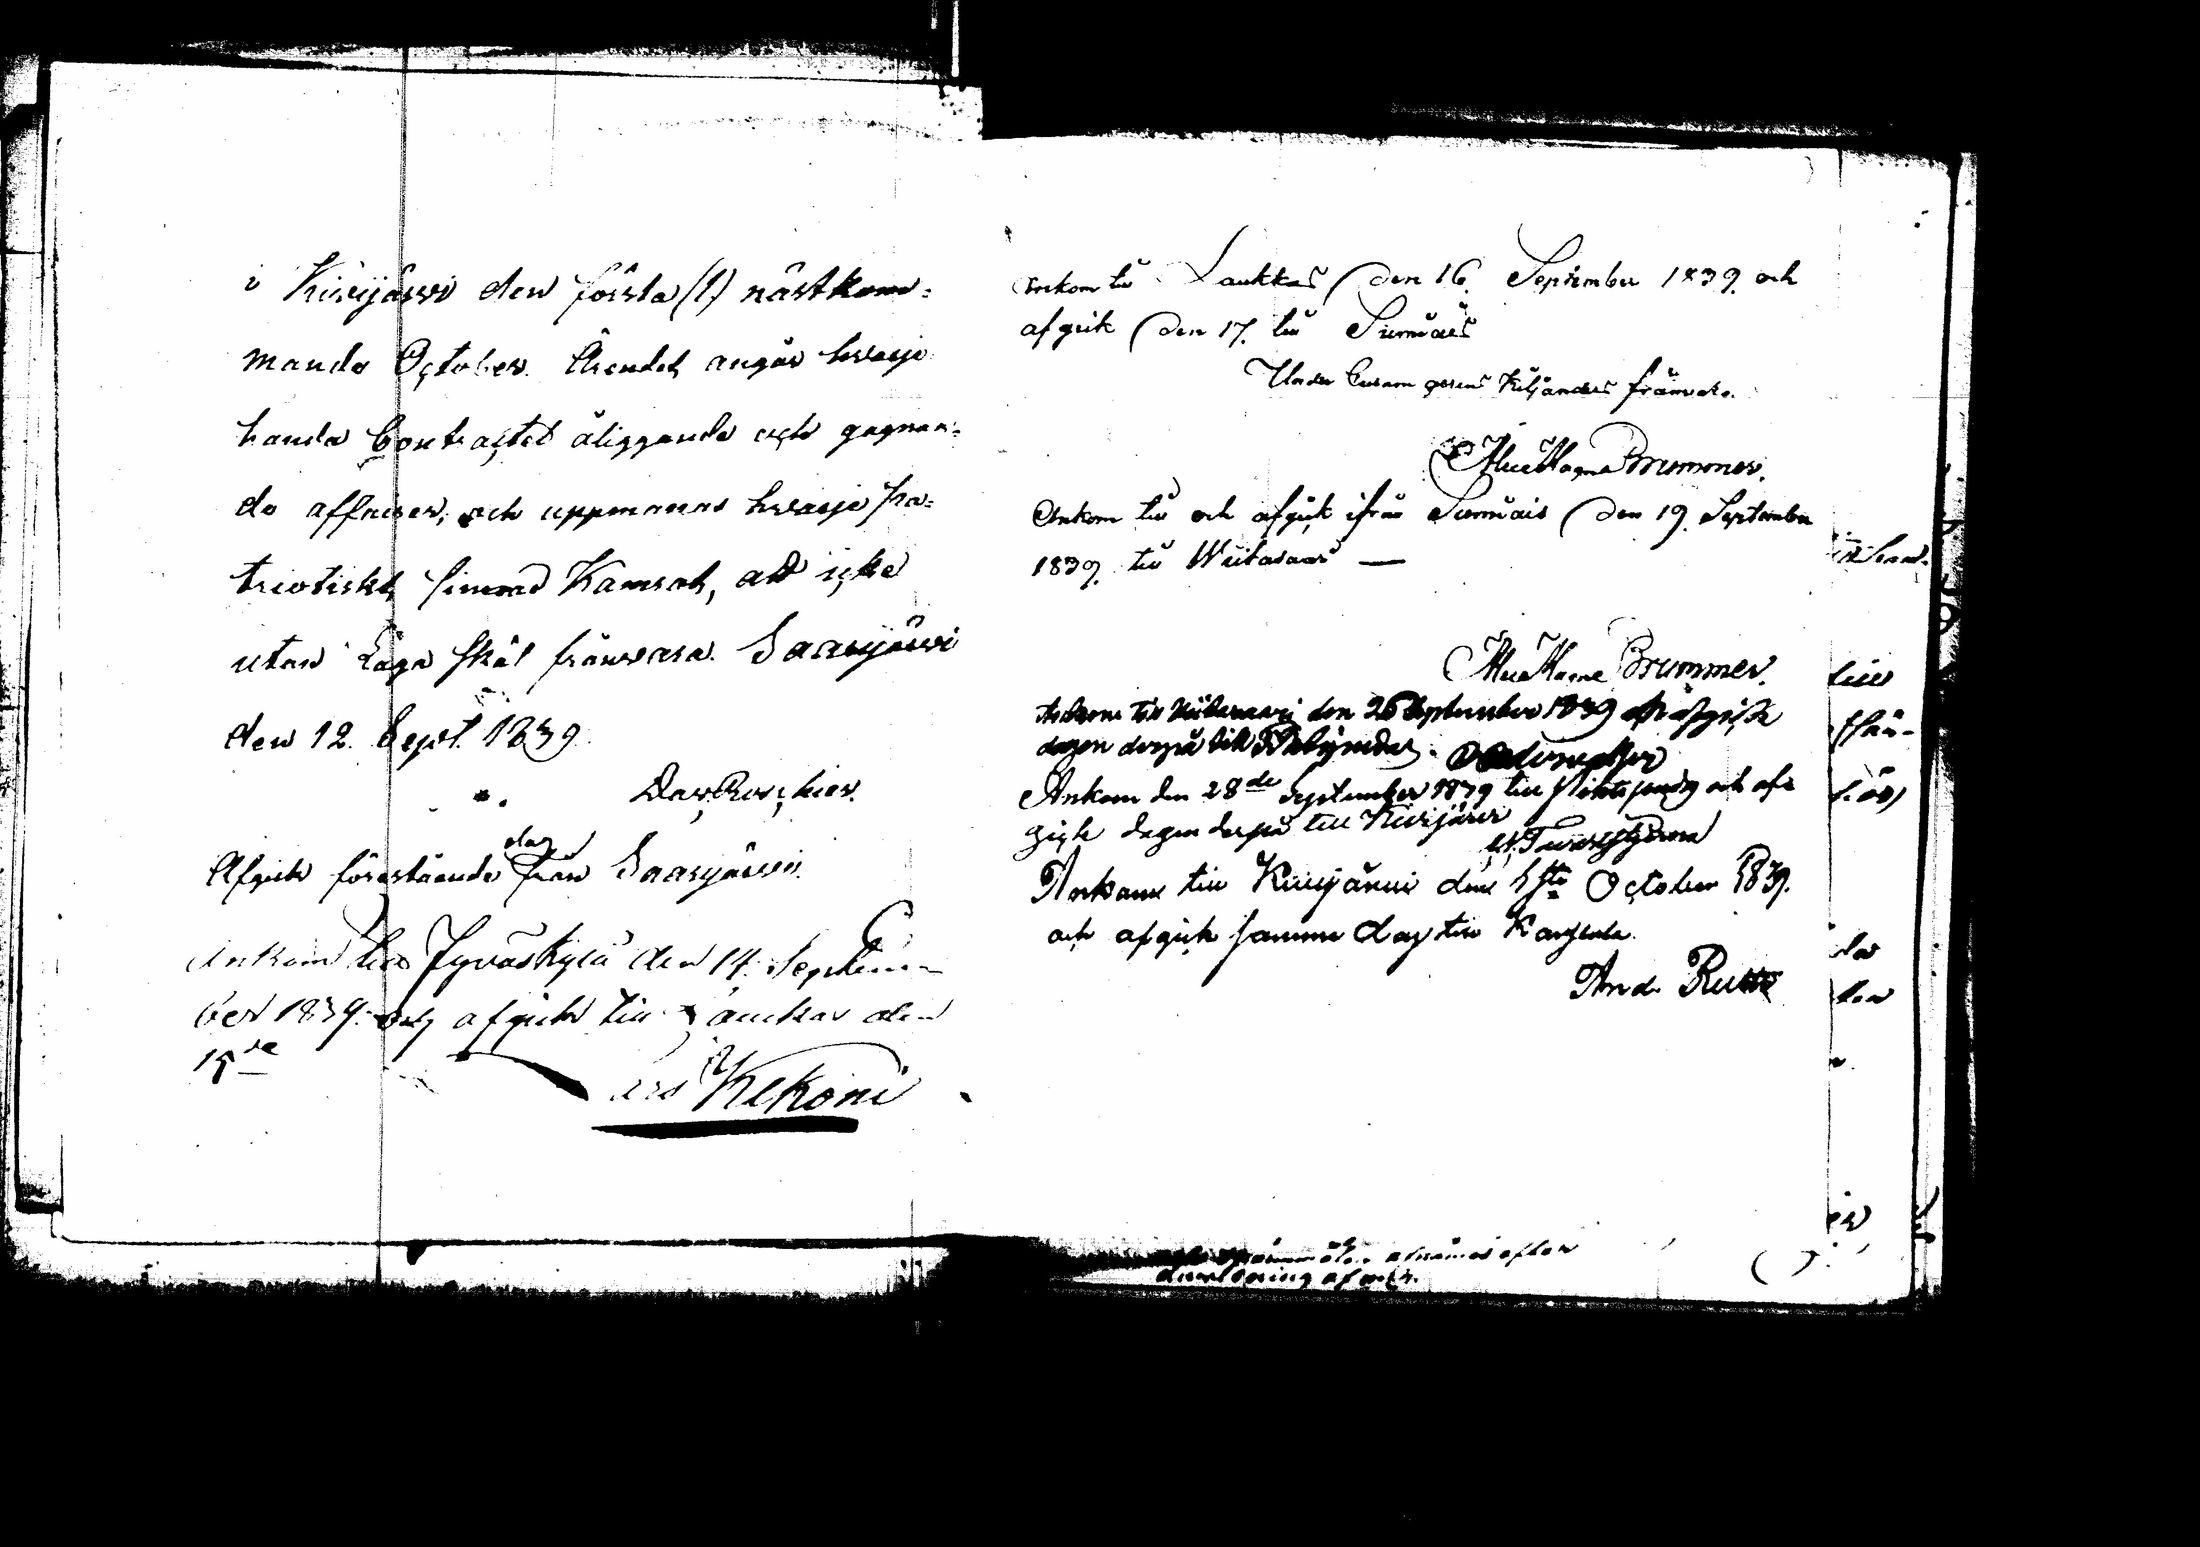 i Kivijärvi den första (1) nästkom=
mande October. Ärendet angår hvarje
handa Contractet åliggande och gagnan=
de affairer, och uppmanas hvarje pa=
triotiskt sinnad Kamrat, att icke
utan Laga skäl frånvara. Saarijärvi
den 12. Sept. 1839.
Dav. Roschier.
Afgick förestående dag från Saarijärvi.
Ankom till Jyväskylä den 14. Septem-
ber 1839. och afgick till Laukas den
15de
Kekoni
Ankom till Laukkas den 16. September 1839. och
afgick den 17. till Sumiais
Under frånvaro.
Brummer.
Ankom till och afgick ifrån Sumiais den 19. September
1839. till Wiitasaari —
Brummer.
Ankom till Wiitasaari den September 1839 och afgick
dagen derpå till
Ankom den 28de September 1839 till och af=
gick dagen derpå till Kivijärvi
Ankom till Kivijärvi den 1sta October 1839.
och afgick samma dag till
And.
after